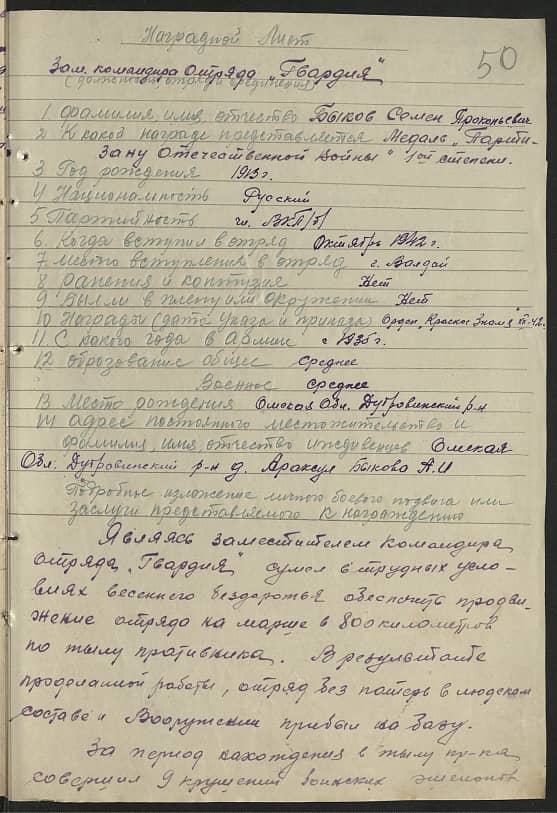 50
Наградной Лист
Зам. командира отряда "Гвардия"
(должность, отряд и соединение)
1 фамилия, имя, отчество Быков Семен Прокопьевич
2 К какой награде представляется Медаль "Парти-
зану Отечественной Войны" 1ой степени.
3 Год рождения 1913г.
4 Национальность Русский
5 Партийность чл. ВКП/б/
6. Когда вступил в отряд Октябрь 1942 г.
7 место вступления в отряд г. Валдай
8 ранения и контузия Нет
9 Былли в плену или окружении Нет
10 Награды (дата указа и приказа) Орден "Красное Знамя" 42г.
11. С какого года в Армии с 1935 г.
12 образование общее среднее
Военное среднее
13 Место рождения Омская Обл. Дубровинский р-н
14 адрес постоянного местожительство и
фамилия, имя, отчество иждивенцев Омская
Обл. Дубровинский р-н д. Араксул Быкова А.И
Подробное изложение личного боевого подвига или
заслуги представляемого к награждению
Являясь заместителем командира
отряда "Гвардия" сумел в трудных усло-
виях весеннего бездорожья обеспечить продви-
жение отряда на марше в 800 километров
по тылу противника. В результате
проделанной работы, отряд без потерь в людском
составе и Вооружении прибыл на базу.
За период нахождения в тылу пр-ка
совершил 9 крушений воинских эшелонов